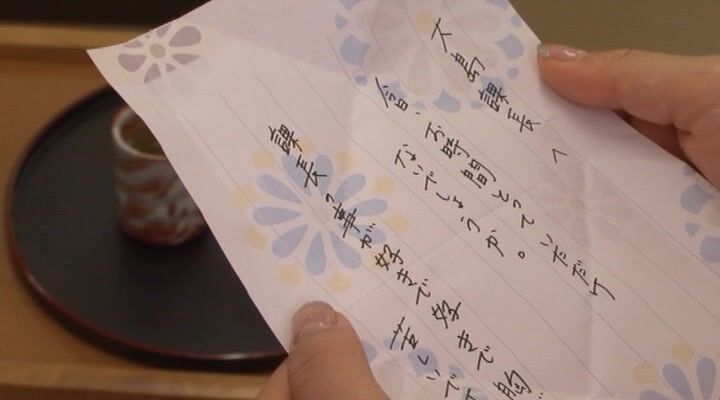 大島課長へ
今、お時間とっていただけ
ないでしょうか。
課長の事が好きで好きで胸
苦しいで